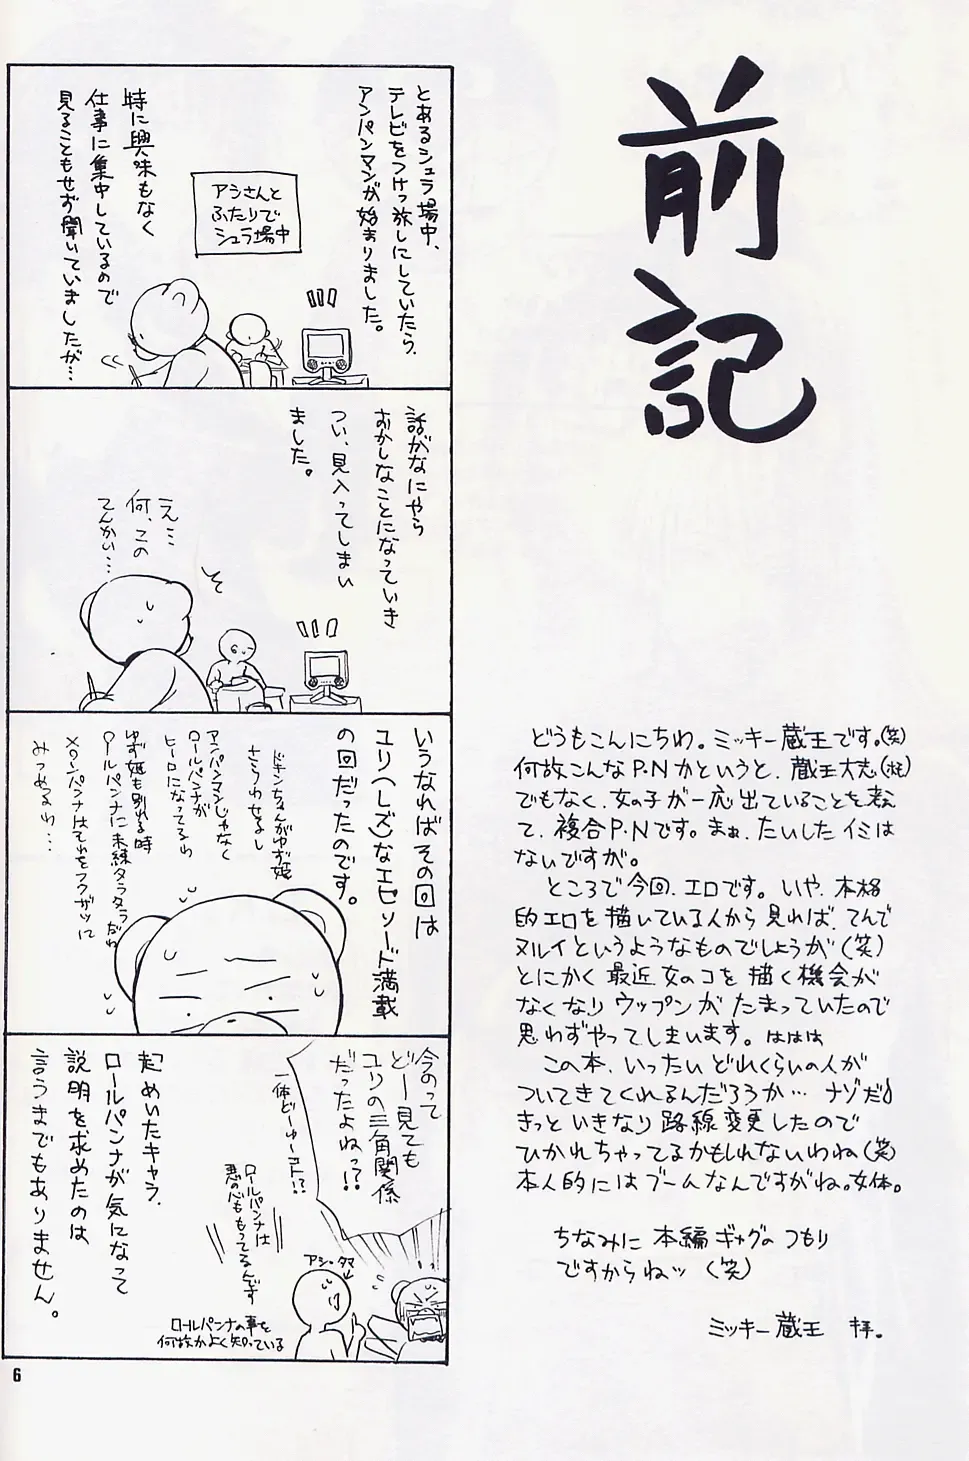 前記
どうもこんにちわ。ミッキー蔵王です。(笑)
何故こんなP.Nかというと、蔵王大志
でもなく、女の子が一応出ていることを考え
て、複合P.Nです。まぁ、たいしたイミは
ないですが。
ところで今回、エロです。いや、本格
的エロを描いている人から見れば、てんで
ヌルイというようなものでしょうが(笑)
とにかく最近女のコを描く機会が
なくなりウップンがたまっていたので
思わずやってしまいます。ははは
この本、いったいどれくらいの人が
ついてきてくれるんだろうか…ナゾだ♪
きっといきなり路線変更したので
ひかれちゃってるかもしれないわね(笑)
本人的にはブームなんですがね。女体。
ちなみに本編ギャグのつもり
ですからねッ(笑)
ミッキー蔵王 拝。
とあるシュラ場中、
テレビをつけっ放しにしていたら、
アンパンマンが始まりました。
アシさんと
ふたりで
シュラ場中
特に興味もなく
仕事に集中しているので
見ることもせず聞いていましたが…
話がなにやら
おかしなことになっていき
つい、見入ってしまい
ました。
え…
何、この
てんかい…
いうなればその回は
ユリ(レズ)なエピソード満載
の回だったのです。
ドキンちゃんがゆず姫
さらわせるし
アンパンマンじゃなく
ロールパンナが
ヒーロになってるわ
ゆず姫も別れる時
ロールパンナに未練タラタラだわ
メロンパンナはそれをフクザツに
みつめるわ…
今のって
どー見ても
ユリの三角関係
だったよねっ?!
一体どーゆーコト!?
ロールパンナは
悪の心ももってるんです
アシ・タマ
ロールパンナの事を
何故かよく知っている
起めいたキャラ、
ロールパンナが気になって
説明を求めたのは
言うまでもありません。
6